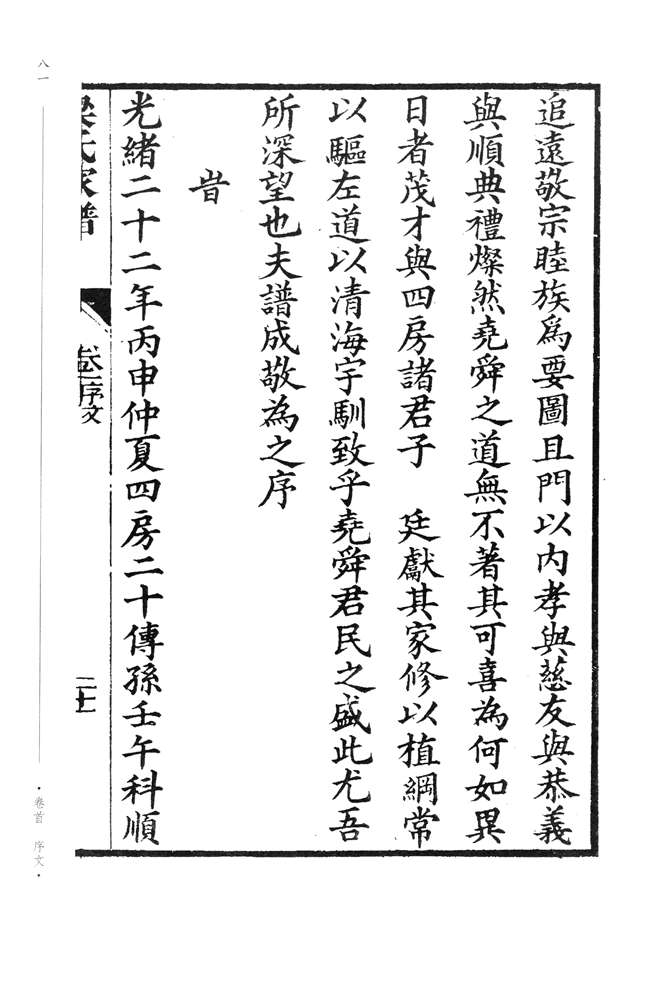 追遠敬宗睦族爲要圖且門以内孝與慈友與恭義
與順典禮燦然堯舜之道無不著其可喜為何如異
日者茂才與四房諸君子　廷獻其家修以植綱常
以驅左道以清海宇馴致乎堯舜君民之盛此尤吾
所深望也夫譜成敬為之序
旹
光緒二十二年丙申仲夏四房二十傳孫壬午科順
梁氏家譜
卷一序文
二十
八一
·卷首　序文·